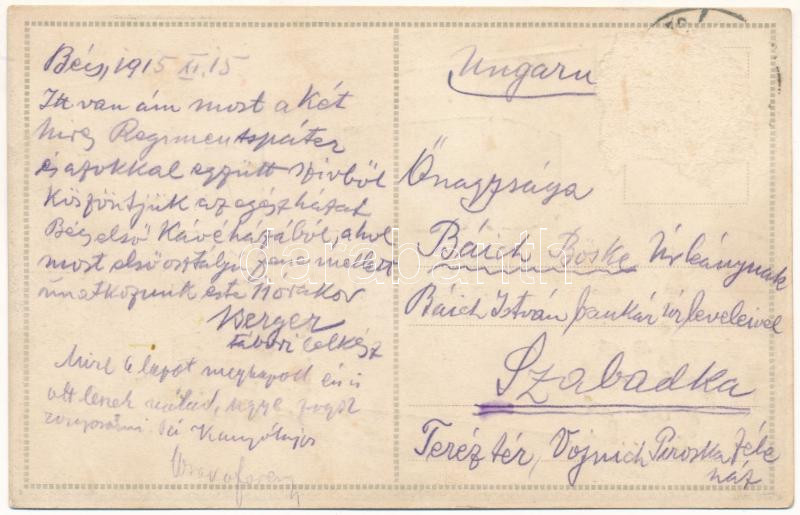 Bécs, 1915 XI. 15
Itt van ám most a két
híres Regimentspáter
és azokkal együtt szívből
köszöntjük az egész házat
Bécs első Kávéházából, ahol
most első osztályú zene mellett
unatkozunk este 11 órakor
Berger
tábori lelkész
Mire e lapot megkapod én is
ott leszek nálad, ugye fogsz
Ungarn
Őnagysága
Báich Böske Úrleánynak
Báich István bankár úr leveleivel
Szabadka
Teréz tér, Vojnich Piroska féle
ház
darabanth